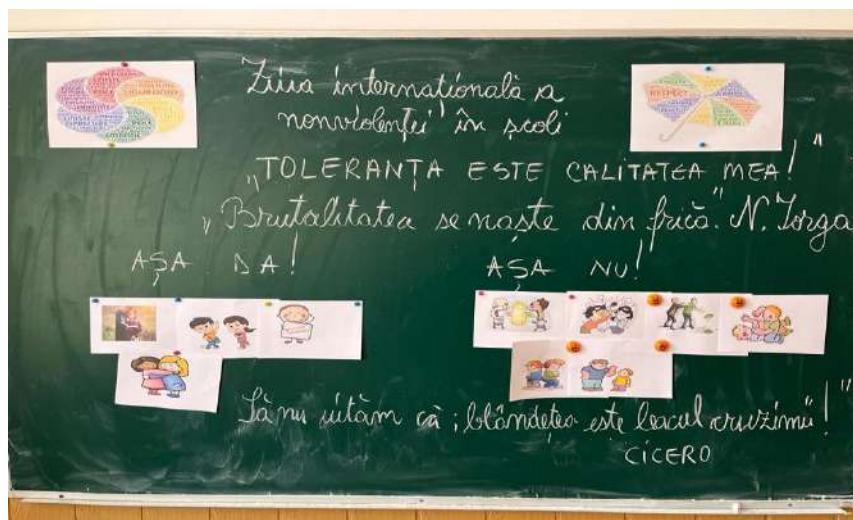 Ziua internațională a
nonviolenței în școli
„TOLERANȚA ESTE CALITATEA MEA!"
„Brutalitatea se naște din frică." N. Iorga
AȘA DA!
AȘA NU!
RESPECT
Să nu uităm că „blândețea este leacul cruzimii!"
CICERO